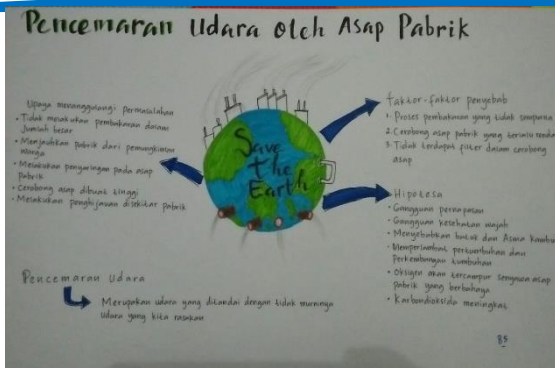 Pencemaran Udara oleh Asap Pabrik
Upaya menanggulangi permasalahan
• Tidak melakukan pembakaran dalam
Jumlah besar
• Menjauhkan pabrik dari pemungkiman
warga
• Melakukan penyaringan pada asap
pabrik
• Cerobong asap dibuat tinggi
• Melakukan penghijauan disekitar pabrik
Save
the
Earth
Faktor-faktor penyebab
1. Proses pembakaran yang tidak sempurna
2. Cerobong asap pabrik yang terlalu rendah
3. Tidak terdapat filter dalam cerobong
asap
Hipotesa
• Gangguan pernapasan
• Gangguan kesehatan wajah
• Menyebabkan batuk dan Asma kambuh
• Memperlambat pertumbuhan dan
Perkembangan tumbuhan
• Oksigen akan tercampur senyawa asap
pabrik yang berbahaya
• Karbondioksida meningkat
Pencemaran Udara
Merupakan udara yang ditandai dengan tidak murninya
udara yang kita rasakan
85